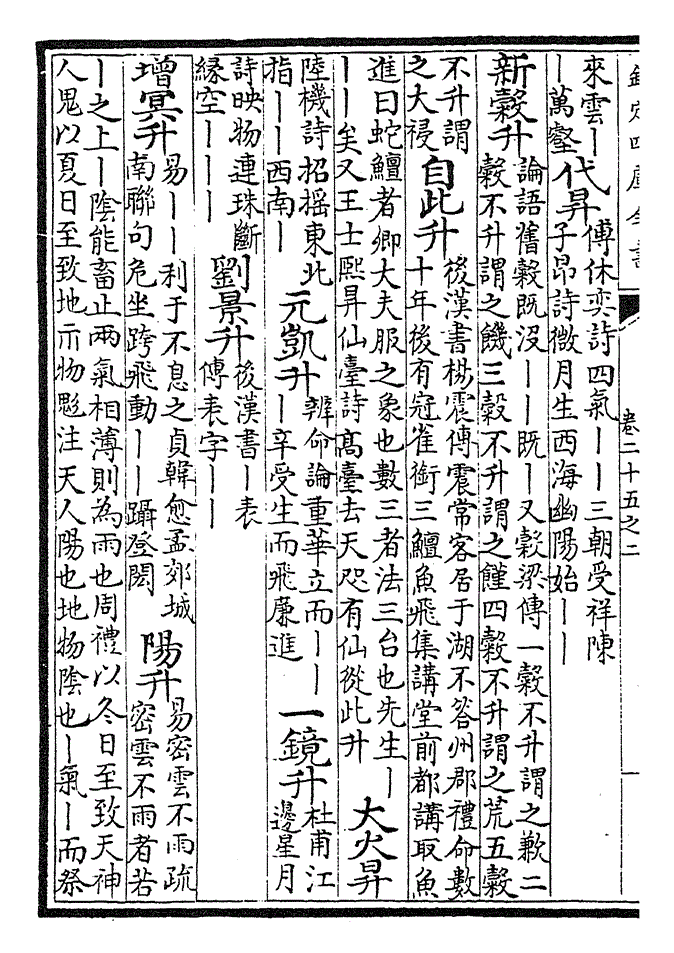 欽定四庫全書
卷二十五之二
一
來雲丨
丨萬壑
代昇
傅休奕詩四氣丨丨三朝受祥陳
子昂詩微月生西海幽陽始丨丨
新穀升
論語舊穀既沒丨丨既丨又穀梁傳一穀不升謂之歉二
穀不升謂之饑三穀不升謂之饉四穀不升謂之荒五穀
不升謂
之大祲
自此升
後漢書楊震傳震常客居于湖不答州郡禮命數
十年後有冠雀銜三鱣魚飛集講堂前都講取魚
進曰蛇鱣者卿大夫服之象也數三者法三台也先生丨
丨丨矣又王士熙昇仙臺詩髙臺去天咫有仙從此升
大火昇
陸機詩招摇東北
指丨丨西南丨
元凱升
辨命論重華立而丨丨
丨辛受生而飛廉進
一鏡升
杜甫江
邊星月
詩映物連珠斷
緣空丨丨丨
劉景升
後漢書丨表
傳表字丨丨
增冥升
易丨丨利于不息之貞韓愈孟郊城
南聯句危坐跨飛動丨丨躡登閎
陽升
易密雲不雨疏
密雲不雨者若
丨之上丨陰能畜止兩氣相薄則為雨也周禮以冬日至致天神
人鬼以夏日至致地示物鬽注天人陽也地物陰也丨氣丨而祭